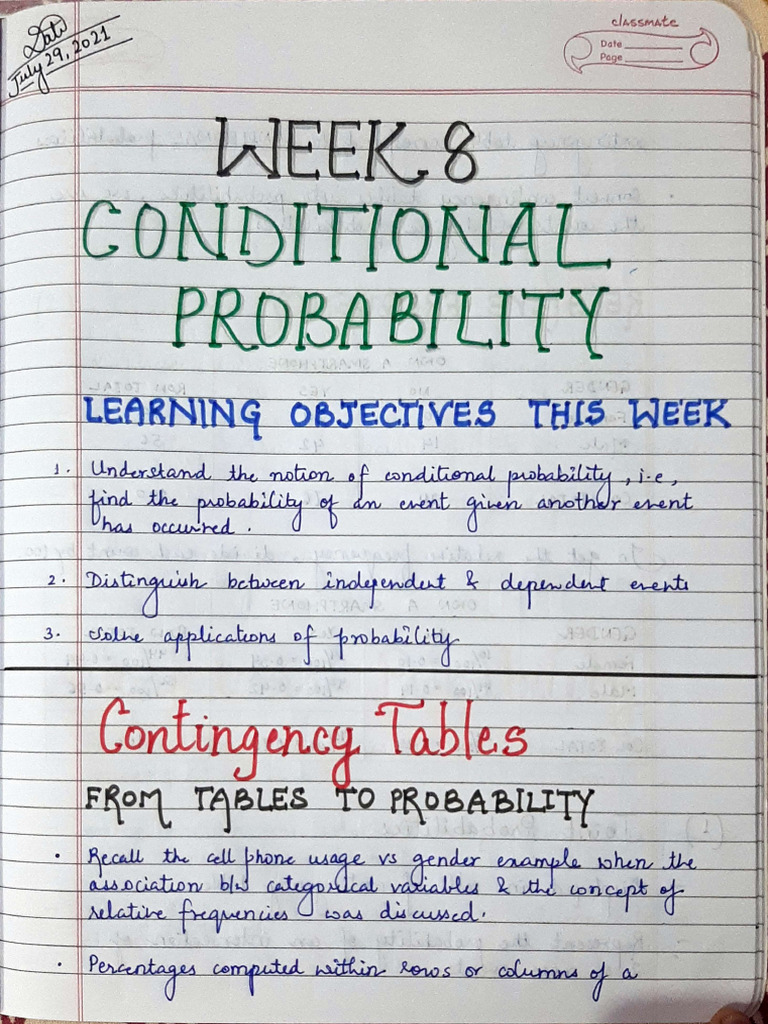 Date
July 29, 2021
classmate
Date
Page
WEEK 8
CONDITIONAL
PROBABILITY
LEARNING OBJECTIVES THIS WEEK
1. Understand the notion of conditional probability, i.e,
find the probability of an event given another event
has occurred.
2. Distinguish between independent & dependent events
3. Solve applications of probability
Contingency Tables
FROM TABLES TO PROBABILITY
• Recall the cell phone usage vs gender example when the
association b/w categorical variables & the concept of
relative frequencies was discussed.
• Percentages computed within rows or columns of a